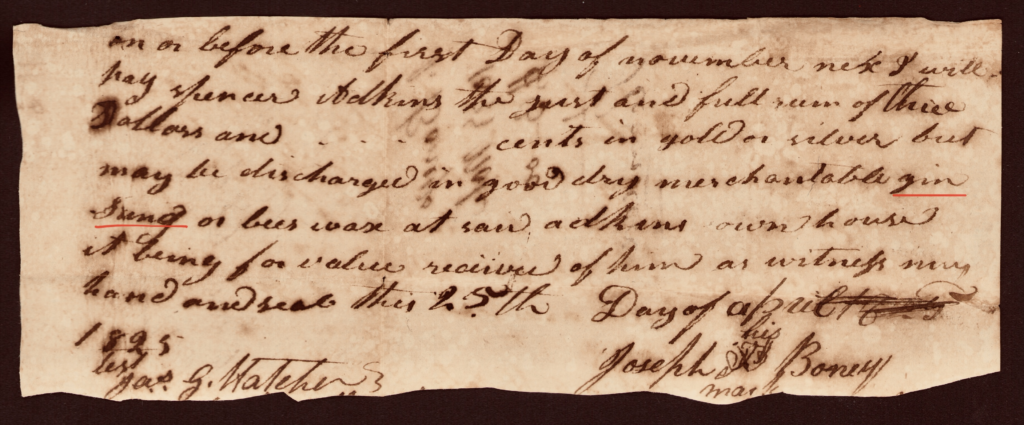 on or before the first Day of november nex I will
pay spencer Adkins the just and full sum of three
Dollars and . . . . cents in gold or silver but
may be discharged in good dry merchantable gin
sang or bees wax at said adkins own house
it being for value received of him as witness my
hand and seal this 25th Day of april
1825
his
test
Jas. G. Hatcher
Joseph Boney
mar